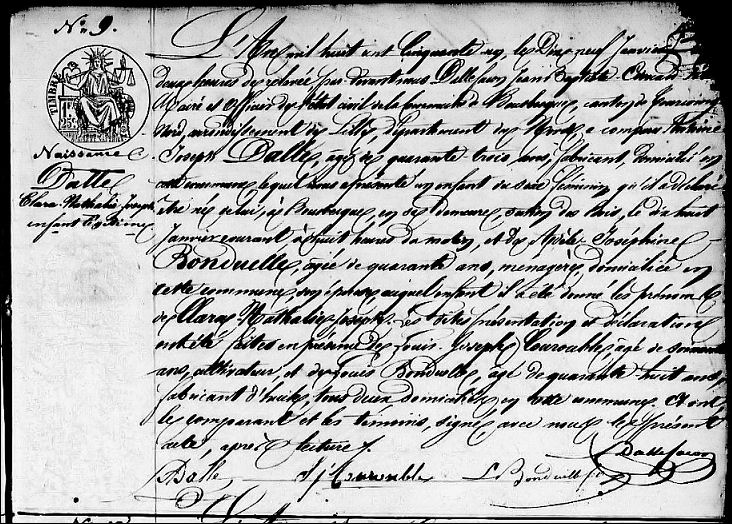 No. 9.
TIMBRE
25c
Naissance
Dalle
Clara Nathalie Joseph
enfant légitime
L'An mil huit cent Cinquante un le Dix neuf Janvier
deux heures de relevée par devant nous Dalle Jean Baptiste
Maire et officier de l'état civil de la commune de Bousbecque, canton de Tourcoing
Nord, arrondissement de Lille, département du Nord, a comparu Antoine
Joseph Dalle, âgé de quarante trois ans, fabricant, domicilié en
cette commune, lequel nous a présenté un enfant de sexe féminin qu'il a déclaré
être né de lui, à Bousbecque, en sa demeure, le dix huit
Janvier courant à huit heures du matin, et de Joséphine
Bonduelle, âgée de quarante ans, ménagère, domiciliée en
cette commune, son épouse, auquel enfant il a été donné les prénoms
de Clara Nathalie Joseph. Les dites présentation et déclaration
ont été faites en présence de Louis Joseph Courouble, âgé de soixante
ans, cultivateur et de Louis Bonduelle, âgé de quarante huit ans,
fabricant d'huile, tous deux domiciliés en cette commune. Et ont,
le comparant et les témoins, signé avec nous le présent
acte, après lecture.
Dalle
Dalle Courouble L. Bonduelle